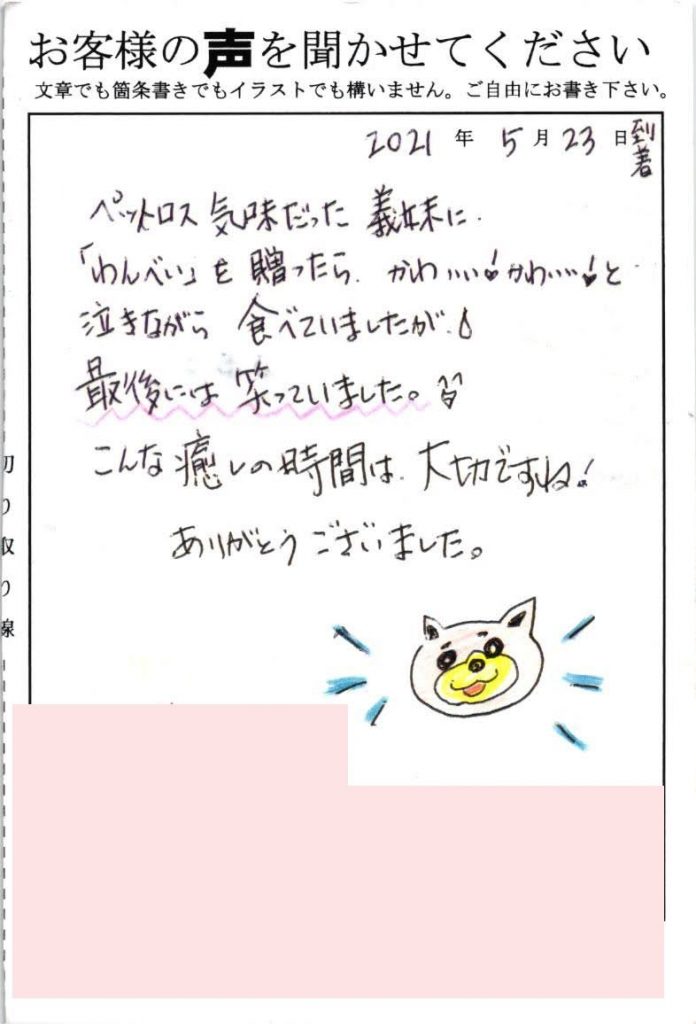 お客様の声を聞かせてください
文章でも箇条書きでもイラストでも構いません。ご自由にお書き下さい。
2021 年 5 月 23 日到着
ペットロス気味だった義妹に
「わんべい」を贈ったら、かわいい!かわいい!と
泣きながら食べていましたが、
最後には笑っていました。
こんな癒しの時間は、大切ですね!
ありがとうございました。
切り取り線